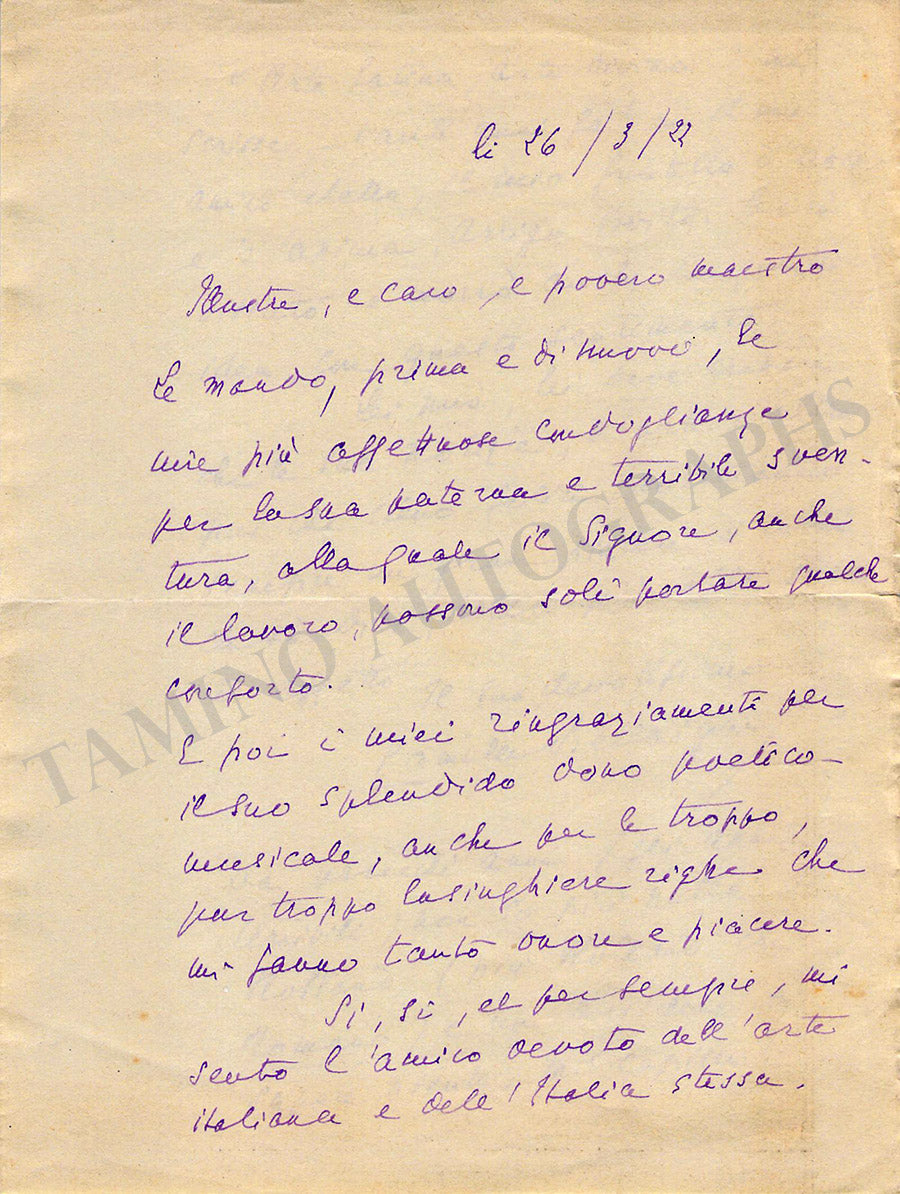 li 26/3/22
Illustre, e caro, e povero maestro
Le mando, prima e di nuovo, le
mie più affettuose condoglianze
per la sua paterna e terribile sven-
tura, alla quale il Signore, anche
il lavoro, possono soli portare qualche
conforto.
E poi i miei ringraziamenti per
il suo splendido dono poetico-
musicale, anche per le troppo,
pur troppo lusinghiere righe che
mi fanno tanto onore e piacere.
Si, si, e per sempre, mi
sento l'amico devoto dell'arte
italiana e dell'Italia stessa.
TAMINO AUTOGRAPHS